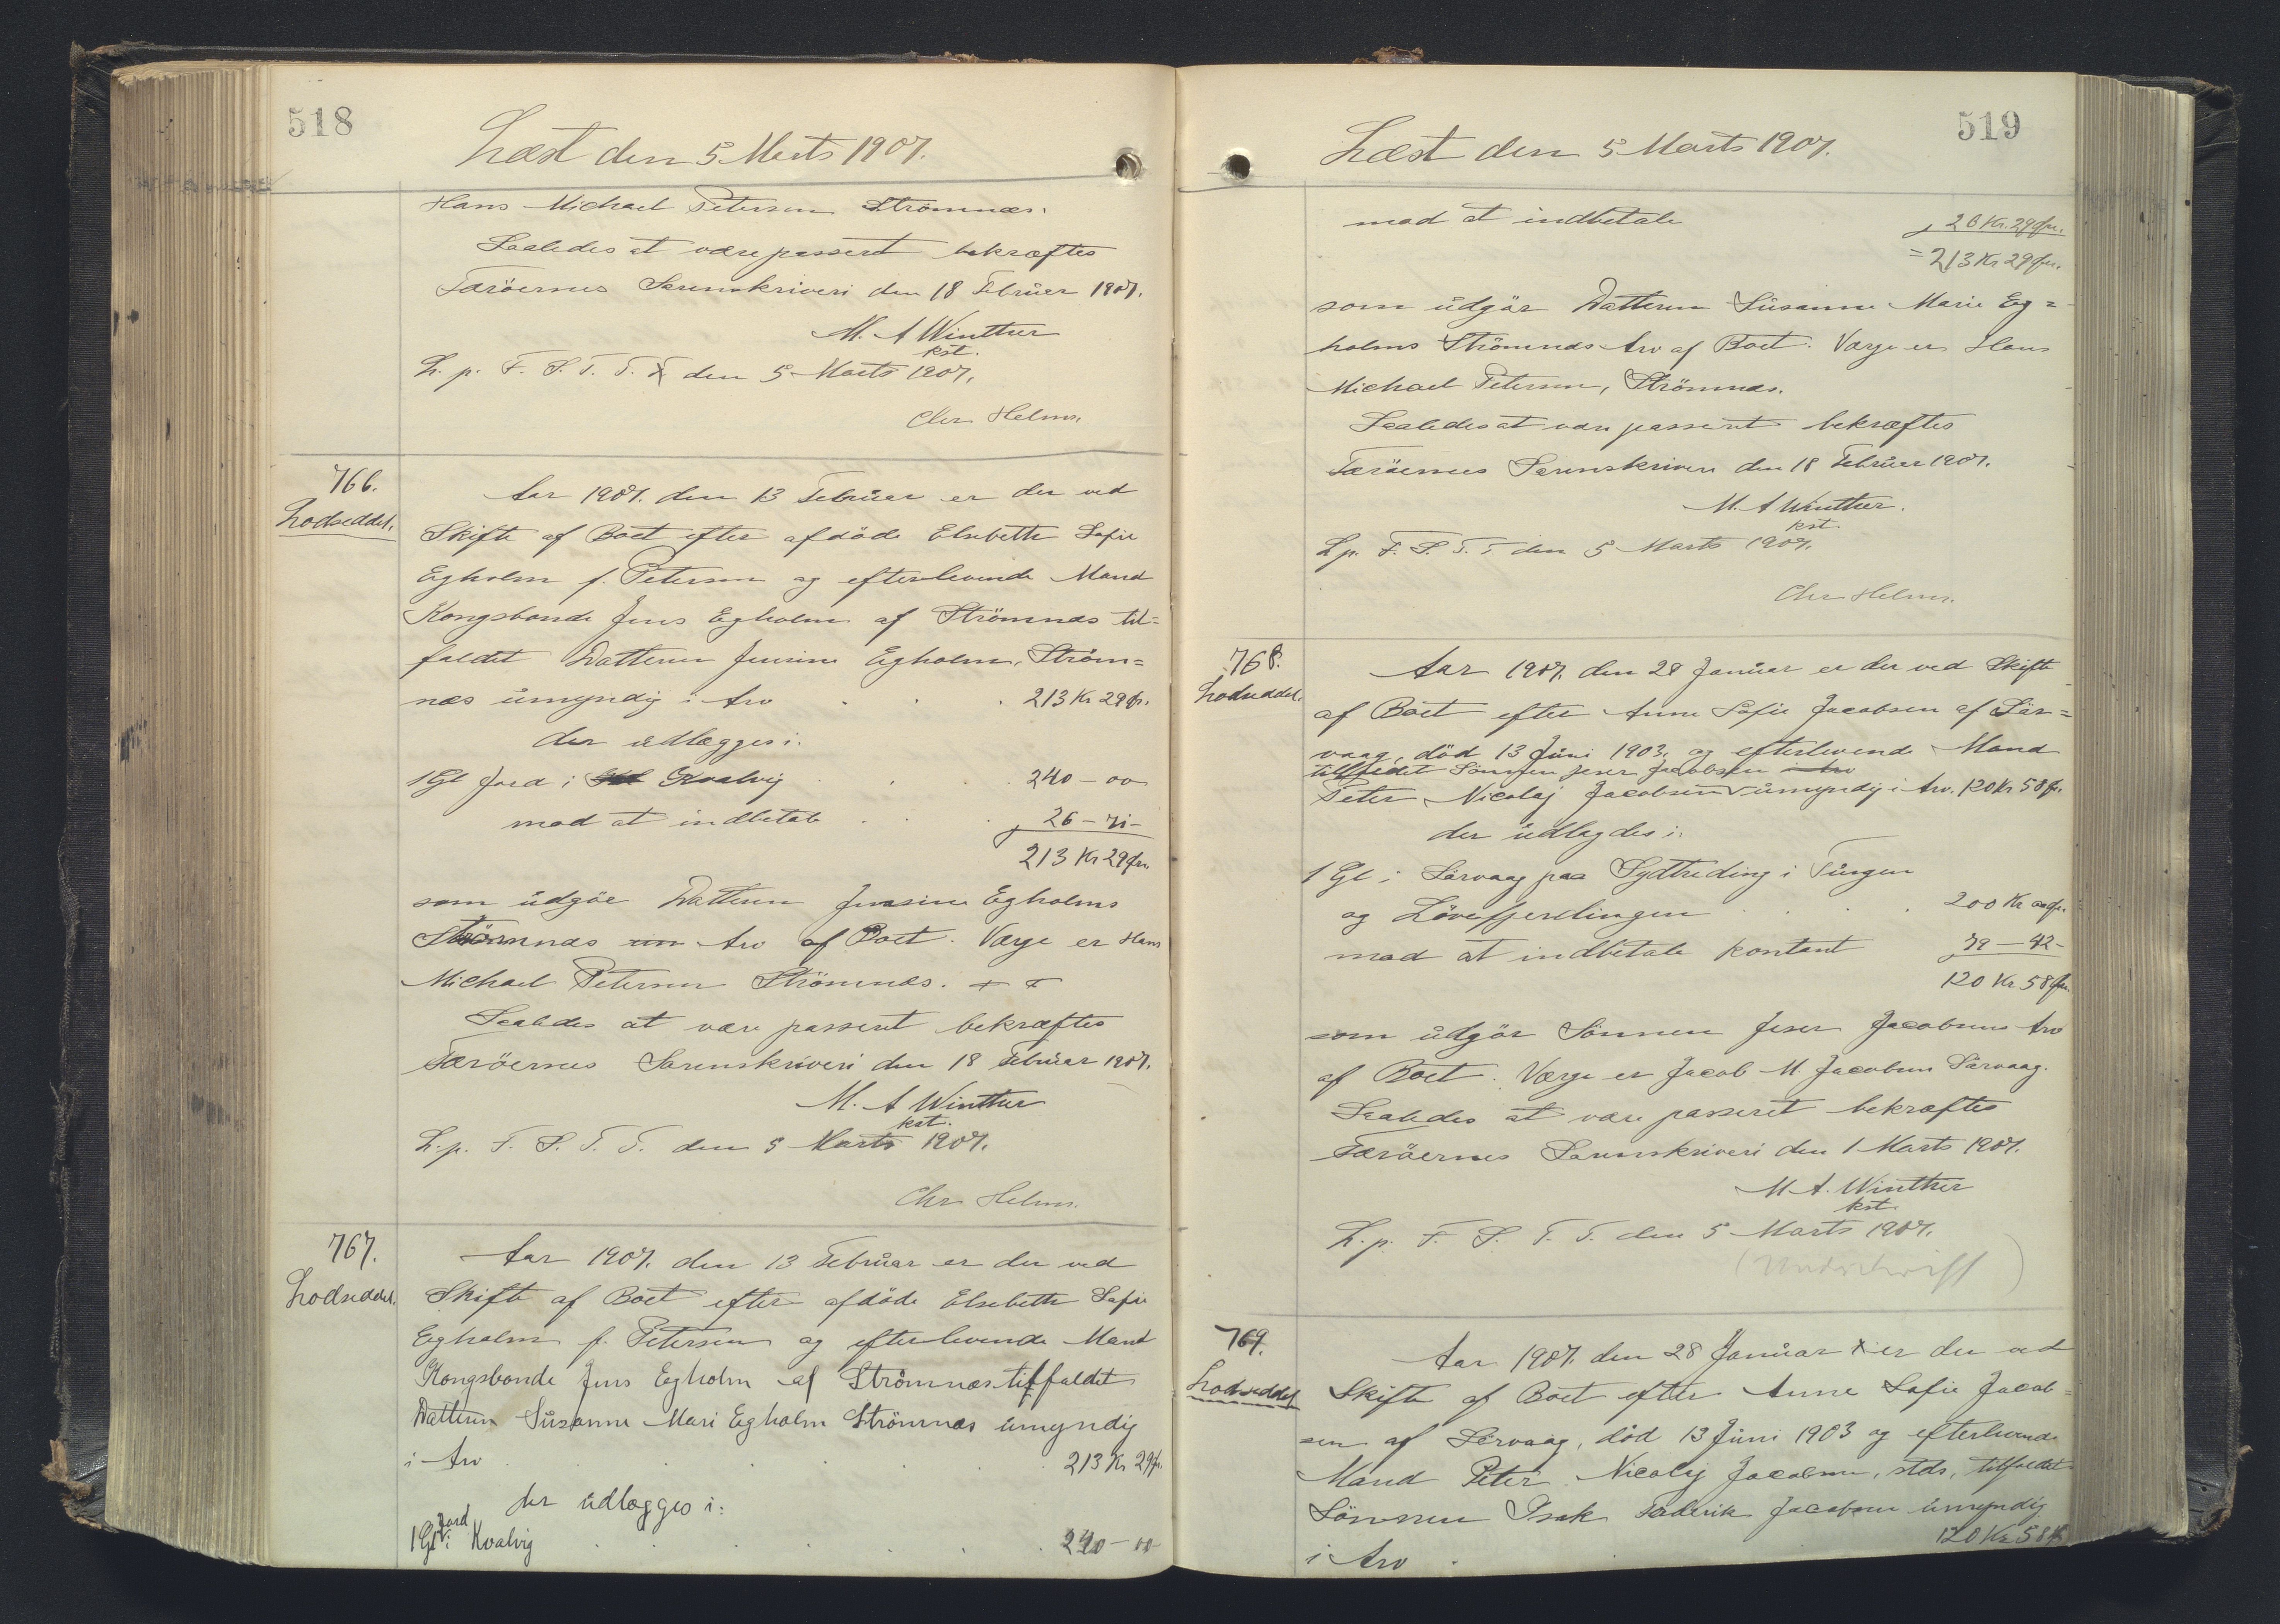 518
Læst den 5 Marts 1907.
Hans Michael Petersen Strömnæs.
Saaledes at være passeret bekræftes
Færöernes Sorenskriveri den 18 Februar 1907.
M. A Winther
kst.
L. p. F. S. T. T. X den 5 Marts 1907.
Chr Helms.
766.
Lodseddel.
Aar 1907. den 13 Februar er der ved
Skifte af Boet efter afdöde Elsebeth Sofie
Egholm f. Petersen og efterlevende Mand
Kongsbonde Jens Egholm af Strömnæs til=
faldet Datteren Jensine Egholm, Ström=
næs umyndig i Arv . . . 213 Kr 29 Ör.
der udlægges i:
1 Gl Jord i Kvalvig . . . 240 – 00
mod at indbetale . . . 26 – 71 –
213 Kr 29 Ör.
som udgör Datteren Jensine Egholms
Strömnæs Arv af Boet. Værge er Hans
Michael Petersen Strömnæs.
Saaledes at være passeret bekræftes
Færöernes Sorenskriveri den 18 Februar 1907.
M. A Winther
kst.
L. p. F. S. T. T. den 5 Marts 1907.
Chr Helms.
767.
Lodseddel.
Aar 1907. den 13 Februar er der ved
Skifte af Boet efter afdöde Elsebeth Sofie
Egholm f. Petersen og efterlevende Mand
Kongsbonde Jens Egholm af Strömnæs tilfaldet
Datteren Susanne Mari Egholm Strömnæs umyndig
i Arv . . . 213 Kr 29 Ör.
der udlægges i:
1 Gl Jord i Kvalvig . . . 240 – 00
519
Læst den 5 Marts 1907.
mod at indbetale 26 Kr. 29 Ör.
= 213 Kr 29 Ör.
som udgör Datteren Susanne Marie Eg=
holms Strömnæs Arv af Boet. Værge er Hans
Michael Petersen, Strömnæs.
Saaledes at være passeret bekræftes
Færöernes Sorenskriveri den 18 Februar 1907.
M. A Winther.
kst.
L. p. F. S. T. T den 5 Marts 1907.
Chr Helms.
768.
Lodseddel.
Aar 1907. den 28 Januar er der ved Skifte
af Boet efter Anne Sofie Jacobsen af Sör=
vaag, död 13 Juni 1903, og efterlevende Mand
tilfaldet Sönnen Jeser Jacobsen i Arv
Peter Nicolaj Jacobsen umyndig i Arv. 120 Kr 58 Ör.
der udlagdes i:
1 Gl i Sörvaag paa Sydtreding i Tungen
og Lövefjerdingen . . . 200 Kr 00 Ör.
mod at indbetale kontant 79 – 42 –
120 Kr. 58 Ör.
som udgör Sönnen Jeser Jacobsens Arv
af Boet. Værge er Jacob M. Jacobsen Sörvaag.
Saaledes at være passeret bekræftes
Færöernes Sorenskriveri den 1 Marts 1907.
M. A. Winther
kst.
L. p. F. S. T. T. den 5 Marts 1907.
(Underskrift)
769.
Lodseddel
Aar 1907. den 28 Januar X er der ved
Skifte af Boet efter Anne Sofie Jacob=
sen af Sörvaag, död 13 Juni 1903 og efterlevende
Mand Peter Nicolaj Jacobsen, stds, tilfaldet
Sönnen Isak Frederik Jacobsen umyndig
i Arv . 120 Kr 58 Ör